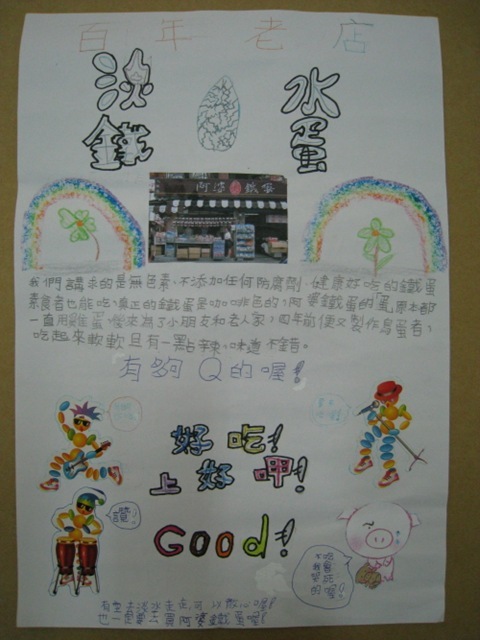 百年老店
淡水
鐵蛋
阿婆鐵蛋
我們講求的是無色素、不添加任何防腐劑、健康好吃的鐵蛋
素食者也能吃、真正的鐵蛋是咖啡色的，阿婆鐵蛋的蛋原本都
一直用雞蛋，後來為了小朋友和老人家，四年前便又製作鳥蛋者，
吃起來軟軟且有一點辣、味道不錯。
有夠Q的喔！
好吃！
上好呷！
Good！
讚！
不吃會
我哭死
的喔！
有空去淡水走走，可以散心喔！
也一定要去買阿婆鐵蛋喔！